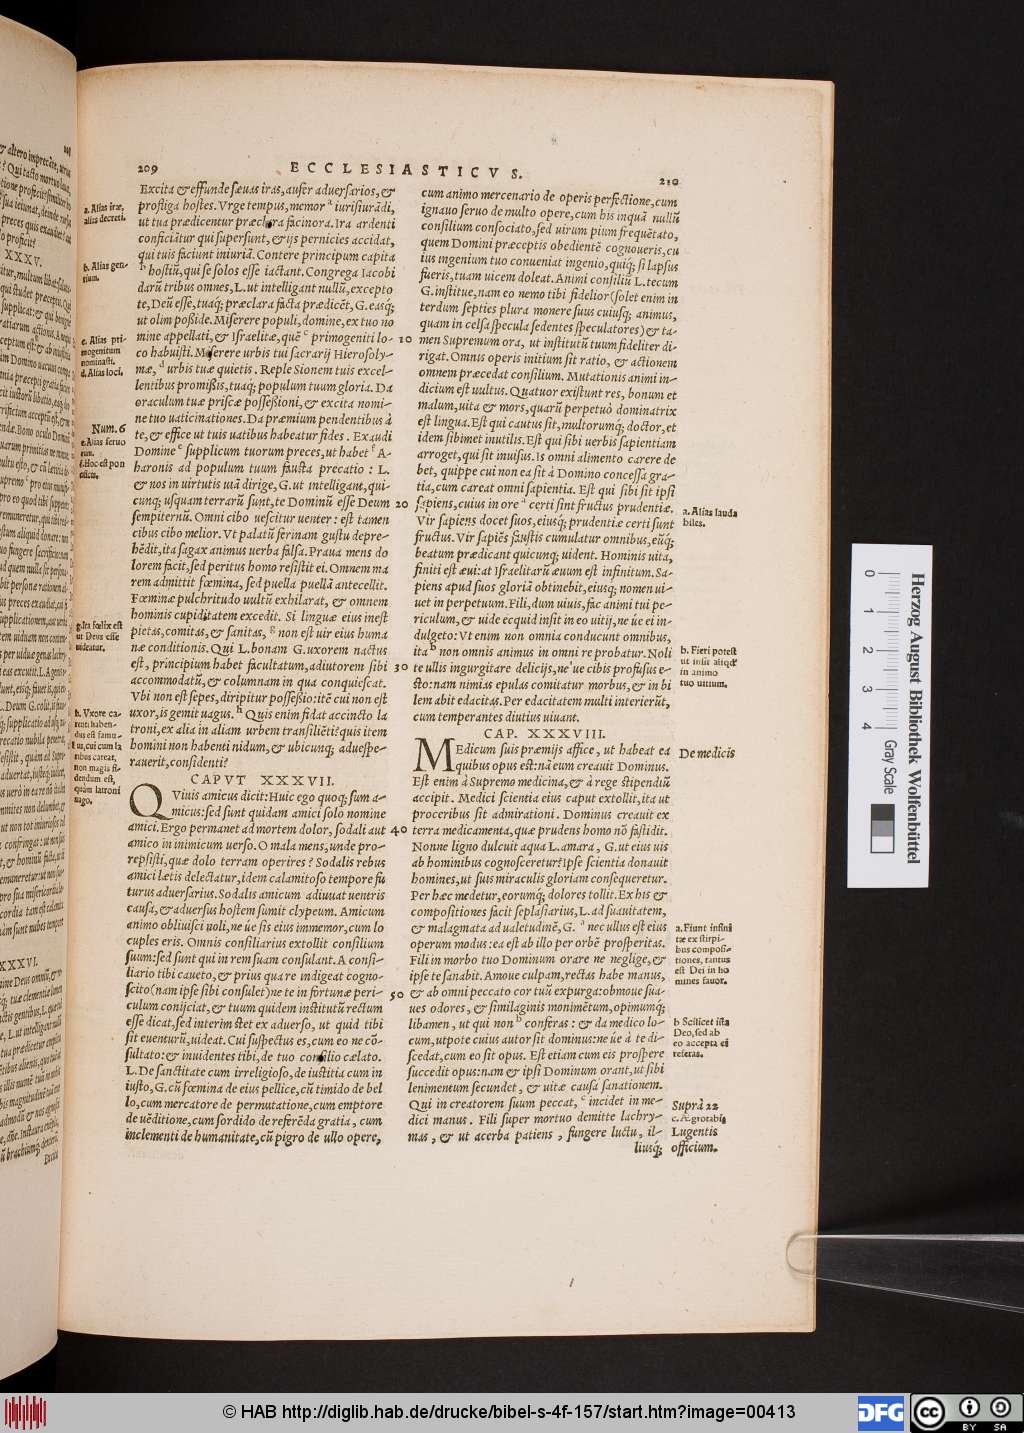 209
ECCLESIASTICVS.
210
Excita &effunde sæuas iras,aufer aduersarios,&
profliga hostes. Vrge tempus,memor a iurisiurādi,
ut tua prædicentur præclara facinora. Ira ardenti
conficiātur qui supersunt,&ijs pernicies accidat,
qui tuis faciunt iniuriā. Contere principum capita
b hostiū,qui se solos esse iactant. Congrega Iacobi
darū tribus omnes,L.ut intelligant nullū,excepto
te,Deū esse,tuaq; præclara facta prædicēt,G.easq;
ut olim poßide. Miserere populi,domine,ex tuo no
mine appellati,& Israelitæ,quē c primogeniti lo-
co habuisti. Miserere urbis tui sacrarij Hierosoly-
mæ, d urbis tuæ quietis. Reple Sionem tuis excel-
lentibus promißis,tuaq; populum tuum gloria. Da
oraculum tuæ priscæ possessioni,& excita nomi-
ne tuo uaticinationes. Da præmium pendentibus à
te,& effice ut tuis uatibus habeatur fides. Exaudi
Domine e supplicum tuorum preces,ut habet f A-
haronis ad populum tuum fausta precatio : L.
& nos in uirtutis uiā dirige,G.ut intelligant,qui-
cunq; usquam terrarū sunt,te Dominū esse Deum
sempiternū. Omni cibo uescitur uenter: est tamen
cibus cibo melior. Vt palatū ferinam gustu depre-
hēdit,ita sagax animus uerba falsa. Praua mens do
lorem facit,sed peritus homo resistit ei. Omnem ma
rem admittit fœmina, sed puella puellā antecellit.
Fœminæ pulchritudo uultū exhilarat, & omnem
hominis cupiditatem excedit. Si linguæ eius inest
pietas,comitas,& sanitas, g non est uir eius huma
næ conditionis. Qui L.bonam G.uxorem nactus
est, principium habet facultatum,adiutorem sibi
accommodatū,& columnam in qua conquiescat.
Vbi non est sepes,diripitur possessio:itē cui non est
uxor,is gemit uagus. h Quis enim fidat accincto la
troni,ex alia in aliam urbem transiliēti? quis item
homini non habenti nidum,& ubicunq; aduespe-
rauerit,considenti?
CAPVT XXXVII.
QViuis amicus dicit:Huic ego quoq; sum a-
micus:sed sunt quidam amici solo nomine
amici. Ergo permanet ad mortem dolor, sodali aut
amico in inimicum uerso. O mala mens,unde pro-
repsisti,quæ dolo terram operires? Sodalis rebus
amici lætis delectatur,idem calamitoso tempore fu
turus aduersarius. Sodalis amicum adiuuat uentris
causa,&aduersus hostem sumit clypeum. Amicum
animo obliuisci noli,ne ue sis eius immemor,cum lo
cuples eris. Omnis consiliarius extollit consilium
suum:sed sunt qui in rem suam consulant. A consi-
liario tibi caueto,& prius qua re indigeat cogno-
scito(nam ipse sibi consulet)ne te in fortunæ peri-
culum conijciat,& tuum quidem institutū rectum
esse dicat,sed interim stet ex aduerso, ut quid tibi
sit euenturū,uideat. Cui suspectus es,cum eo ne cō-
sultato:& inuidentes tibi,de tuo consilio cælato.
L.De sanctitate cum irreligioso,de iustitia cum in
iusto,G.cū fœmina de eius pellice,cū timido de bel
lo,cum mercatore de permutatione,cum emptore
de uēditione,cum sordido de referēda gratia, cum
inclementi de humanitate,cū pigro de ullo opere,
a. Alias iræ,
alias decreti.
b. Alias gen-
tium.
c. Alias pri-
mogenitum
nominasti.
d. Alias loci.
Num. 6
e. Alias seruo
rum.
g. Ita fœlix est
ut Deus esse
uideatur.
h. Vxore ca-
renti haben-
dus est famu-
lus,cui cum la
ribus careat,
non magis fi-
dendum est,
quàm latroni
uago.
10
20
30
40
50
cum animo mercenario de operis perfectione,cum
ignauo seruo de multo opere,cum his inquā nullū
consilium consociato,sed uirum pium frequētato,
quem Domini præceptis obedientē cognoueris,cu
ius ingenium tuo conueniat ingenio,quiq; si lapsus
fueris,tuam uicem doleat. Animi consiliū L.tecum
G.institue,nam eo nemo tibi fidelior(solet enim in
terdum septies plura monere suus cuiusq; animus,
quam in celsa specula sedentes speculatores)& ta-
men Supremum ora, ut institutū tuum fideliter di-
rigat. Omnis operis initium sit ratio, & actionem
omnem præcedat consilium. Mutationis animi in-
dicium est uultus. Quatuor existunt res, bonum et
malum,uita & mors,quarū perpetuò dominatrix
est lingua. Est qui cautus sit,multorumq; doctor,et
idem sibimet inutilis. Est qui sibi uerbis sapientiam
arroget,qui sit inuisus. Is omni alimento carere de
bet, quippe cui non ea sit à Domino concessa gra-
tia,cum careat omni sapientia. Est qui sibi sit ipsi
sapiens,cuius in ore a certi sint fructus prudentiæ.
Vir sapiens docet suos,eiusq; prudentiæ certi sunt
fructus. Vir sapiēs faustis cumulatur omnibus,eūq;
beatum prædicant quicunq; uident. Hominis uita,
finiti est æui:at Israelitarū æuum est infinitum. Sa-
piens apud suos gloriā obtinebit,eiusq; nomen ui-
uet in perpetuum. Fili,dum uiuis,fac animi tui pe-
riculum,& uide ecquid insit in eo uitij,ne ue ei in-
dulgeto:Vt enim non omnia conducunt omnibus,
ita b non omnis animus in omni re probatur. Noli
te ullis ingurgitare delicijs,ne ue cibis profusus e-
sto:nam nimias epulas comitatur morbus,& in bi
lem abit edacitas. Per edacitatem multi interierūt,
cum temperantes diutius uiuant.
CAP. XXXVIII.
MEdicum suis præmijs affice, ut habeat ea
quibus opus est:nā eum creauit Dominus.
Est enim à Supremo medicina,& à rege stipendiū
accipit. Medici scientia eius caput extollit,ita ut
proceribus sit admirationi. Dominus creauit ex
terra medicamenta,quæ prudens homo nō fastidit.
Nonne ligno dulcuit aqua L.amara, G.ut eius uis
ab hominibus cognosceretur? Ipse scientia donauit
homines,ut suis miraculis gloriam consequeretur.
Per hæc medetur,eorumq; dolores tollit. Ex his &
compositiones facit seplasiarius,L.ad suauitatem,
& malagmata ad ualetudinē,G. a nec ullus est eius
operum modus:ea est ab illo per orbē prosperitas.
Fili in morbo tuo Dominum orare ne neglige,&
ipse te sanabit. Amoue culpam,rectas habe manus,
& ab omni peccato cor tuū expurga:obmoue sua-
ues odores, & similaginis monimētum,opimumq;
libamen, ut qui non b conferas: & da medico lo-
cum,utpote cuius autor sit dominus:ne ue à te di-
scedat,cum eo sit opus. Est etiam cum eis prospere
succedit opus:nam & ipsi Dominum orant,ut sibi
lenimentum secundet, & uitæ causa sanationem.
Qui in creatorem suum peccat, c incidet in me-
dici manus. Fili super mortuo demitte lachry-
mas, & ut acerba patiens, fungere luctu, il-
liusq;
a. Alias lauda
biles.
b. Fieri potest
ut insit aliqđ
in animo
tuo uitium.
De medicis
a. Fiunt infini
tæ ex stirpi-
bus composi-
tiones, tantus
est Dei in ho
mines fauor.
b Scilicet ista
Deo,sed ab
eo accepta ei
referas.
Suprà 22
c. Ægrotabit
Lugentis
officium.
Herzog August Bibliothek Wolfenbüttel
0 1 2 3 4
Gray Scale
© HAB http://diglib.hab.de/drucke/bibel-s-4f-157/start.htm?image=00413
DFG
cc
BY SA